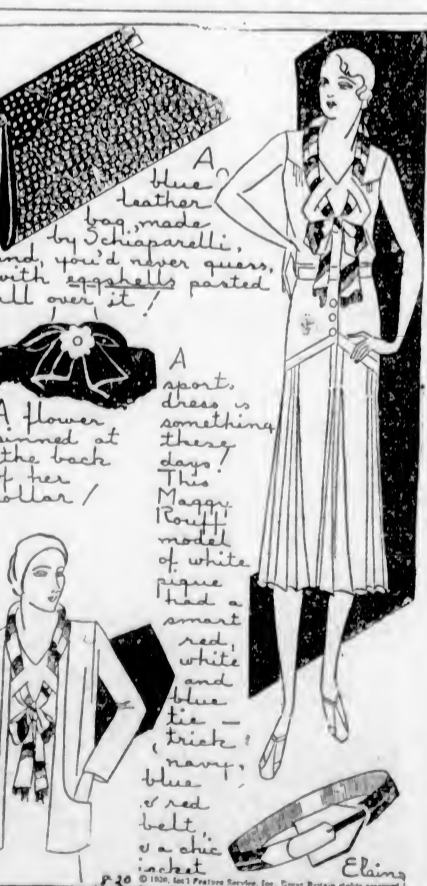 A
blue
leather
bag, made
by Schiaparelli,
and, you'd never guess,
with eggshells pasted
all over it!
A flower
pinned at
the back
of her
collar!
A
sports
dress is
something
these
days!
This
Maggy
Rouff
model
of white
pique
had a
smart
red,
white
and
blue
tie —
trick
navy,
blue
& red
belt,
& a chic
jacket
Elaine
8-20 © 1930, Int'l Feature Service, Inc. Great Britain rights reserved